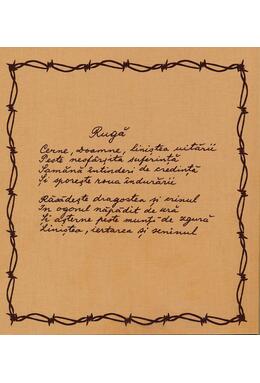 Rugă
Cerne, Doamne, liniștea uitării
Peste nesfârșita suferință
Samănă întinderi de credință
Și sporește roua îndurării
Răsădește dragostea și crinul
În ogorul năpădit de ură
Și așterne peste munți de zgură
Liniștea, iertarea și seninul